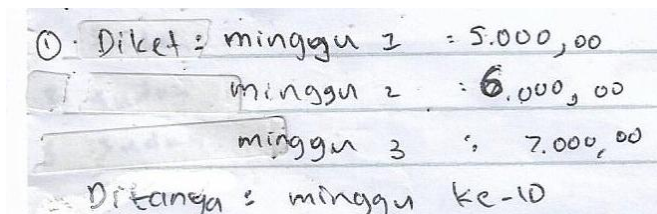 ① Diket : minggu 1 : 5.000,00
minggu 2 : 6.000,00
minggu 3 : 7.000,00
Ditanya : minggu ke-10